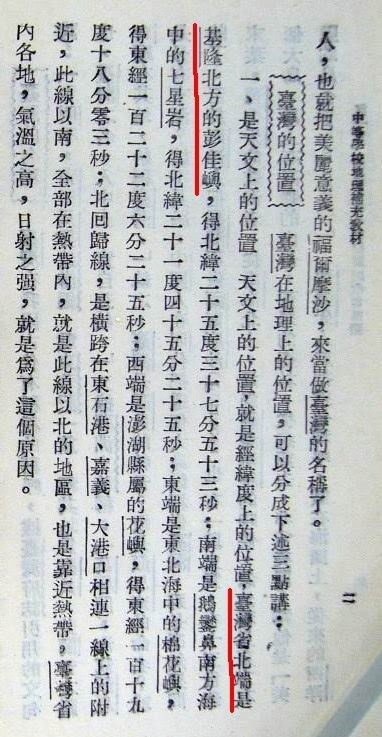 中等學校地理補充教材
二
人，也就把美麗意義的福爾摩沙，來當做臺灣的名稱了。
臺灣的位置　臺灣在地理上的位置，可以分成下述三點講：
一、是天文上的位置　天文上的位置，就是經緯度上的位置，臺灣省北端是
基隆北方的彭佳嶼，得北緯二十五度三十七分五十三秒；南端是鵝鑾鼻南方海
中的七星岩，得北緯二十一度四十五分二十五秒；東端是東北海中的棉花嶼，
得東經一百二十二度六分二十五秒；西端是澎湖縣屬的花嶼，得東經一百十九
度十八分零三秒；北回歸線，是橫跨在東石港、嘉義、大港口相連一線上的附
近，此線以南，全部在熱帶內，就是此線以北的地區，也是靠近熱帶，臺灣省
內各地，氣溫之高，日射之强，就是爲了這個原因。